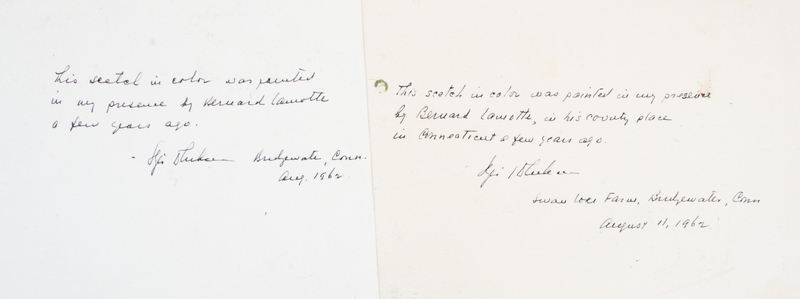 This scetch in color was painted
in my presence by Bernard Lamotte
a few years ago.
Bridgewater, Conn.
Aug. 1962
This scetch in color was painted in my presence
by Bernard Lamotte, in his country place
in Connecticut a few years ago.
Farm, Bridgewater, Conn
August 11, 1962